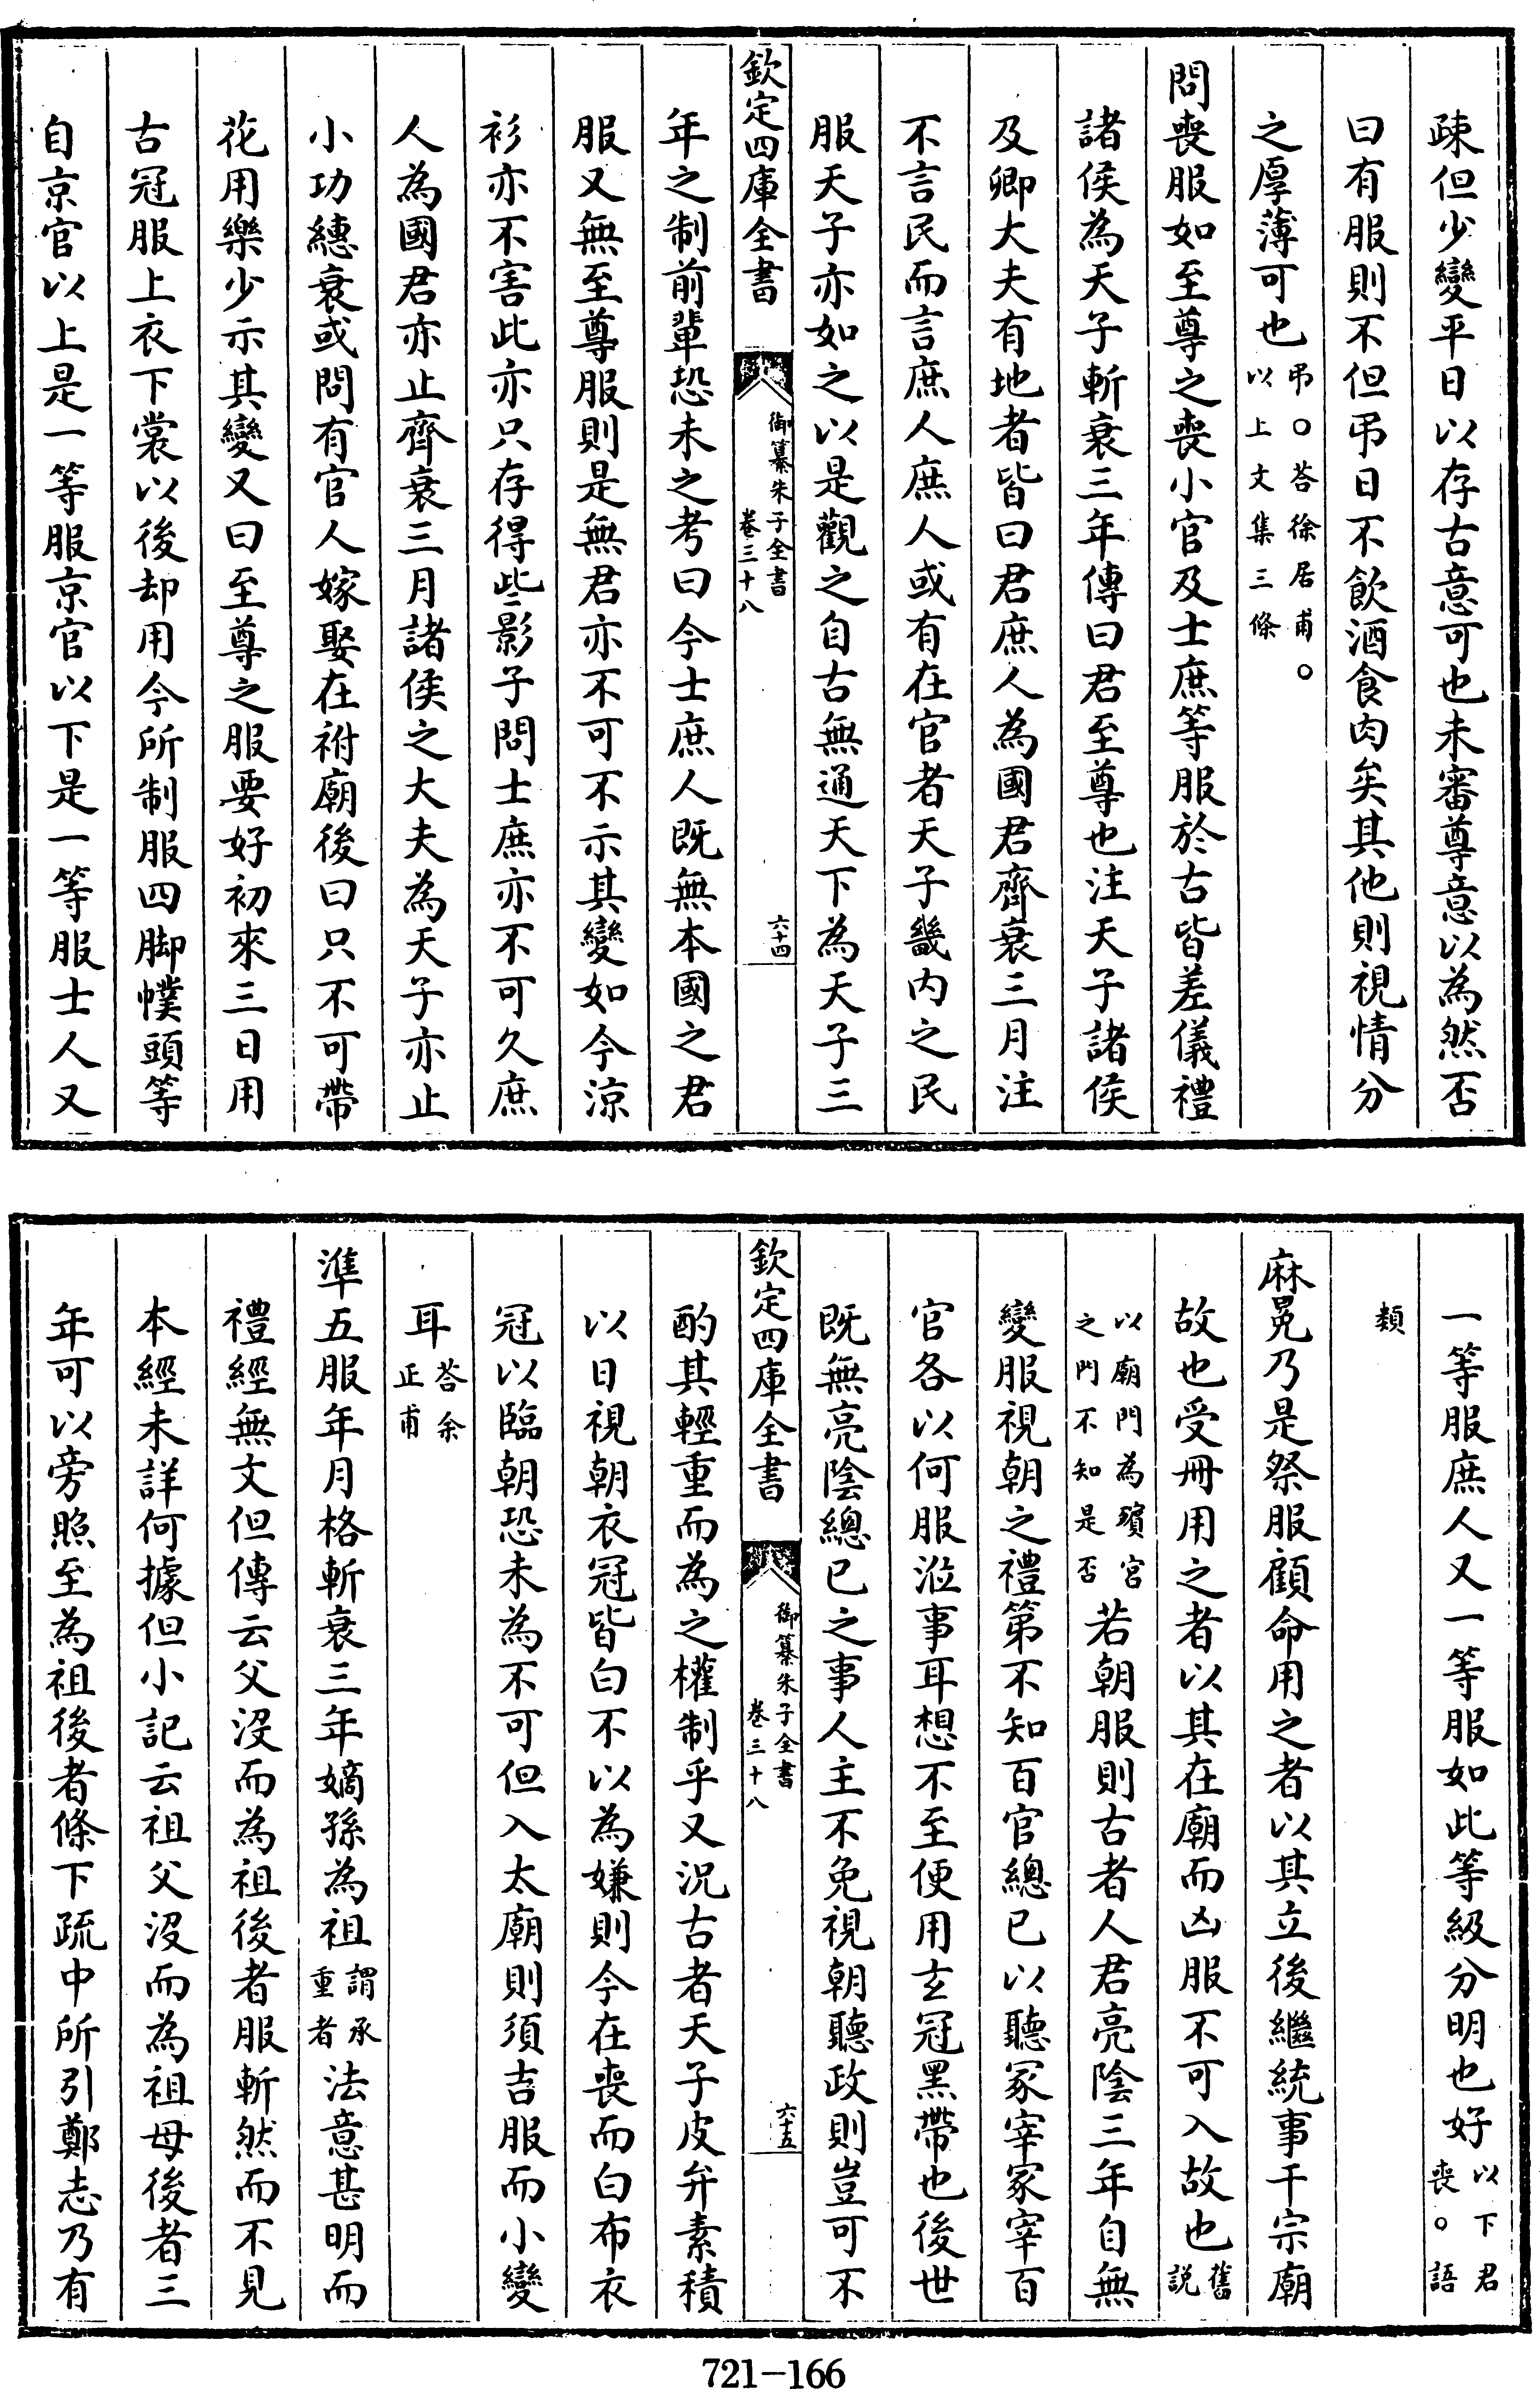 疎但少變平日以存古意可也未審尊意以為然否
曰有服則不但弔日不飲酒食肉矣其他則視情分
之厚薄可也弔○荅徐居甫○以上文集三條
問喪服如至尊之喪小官及士庶等服於古皆差儀禮
諸侯為天子斬衰三年傳曰君至尊也注天子諸侯
及卿大夫有地者皆曰君庶人為國君齊衰三月注
不言民而言庶人庶人或有在官者天子畿內之民
服天子亦如之以是觀之自古無通天下為天子三
欽定四庫全書
御纂朱子全書
卷三十八
六十四
年之制前輩恐未之考曰今士庶人既無本國之君
服又無至尊服則是無君亦不可不示其變如今涼
衫亦不害此亦只存得些影子問士庶亦不可久庶
人為國君亦止齊衰三月諸侯之大夫為天子亦止
小功繐衰或問有官人嫁娶在祔廟後曰只不可帶
花用樂少示其變又曰至尊之服要好初來三日用
古冠服上衣下裳以後却用今所制服四脚幞頭等
自京官以上是一等服京官以下是一等服士人又
一等服庶人又一等服如此等級分明也好以下君喪○語
類
麻冕乃是祭服顧命用之者以其立後繼統事干宗廟
故也受冊用之者以其在廟而凶服不可入故也舊說
以廟門為殯宮之門不知是否若朝服則古者人君亮陰三年自無
變服視朝之禮第不知百官總已以聽冢宰冢宰百
官各以何服涖事耳想不至便用玄冠黑帶也後世
既無亮陰總已之事人主不免視朝聽政則豈可不
欽定四庫全書
御纂朱子全書
卷三十八
六十五
酌其輕重而為之權制乎又況古者天子皮弁素積
以日視朝衣冠皆白不以為嫌則今在喪而白布衣
冠以臨朝恐未為不可但入太廟則須吉服而小變
耳荅余正甫
準五服年月格斬衰三年嫡孫為祖謂承重者法意甚明而
禮經無文但傳云父沒而為祖後者服斬然而不見
本經未詳何據但小記云祖父沒而為祖母後者三
年可以旁照至為祖後者條下疏中所引鄭志乃有
721-166